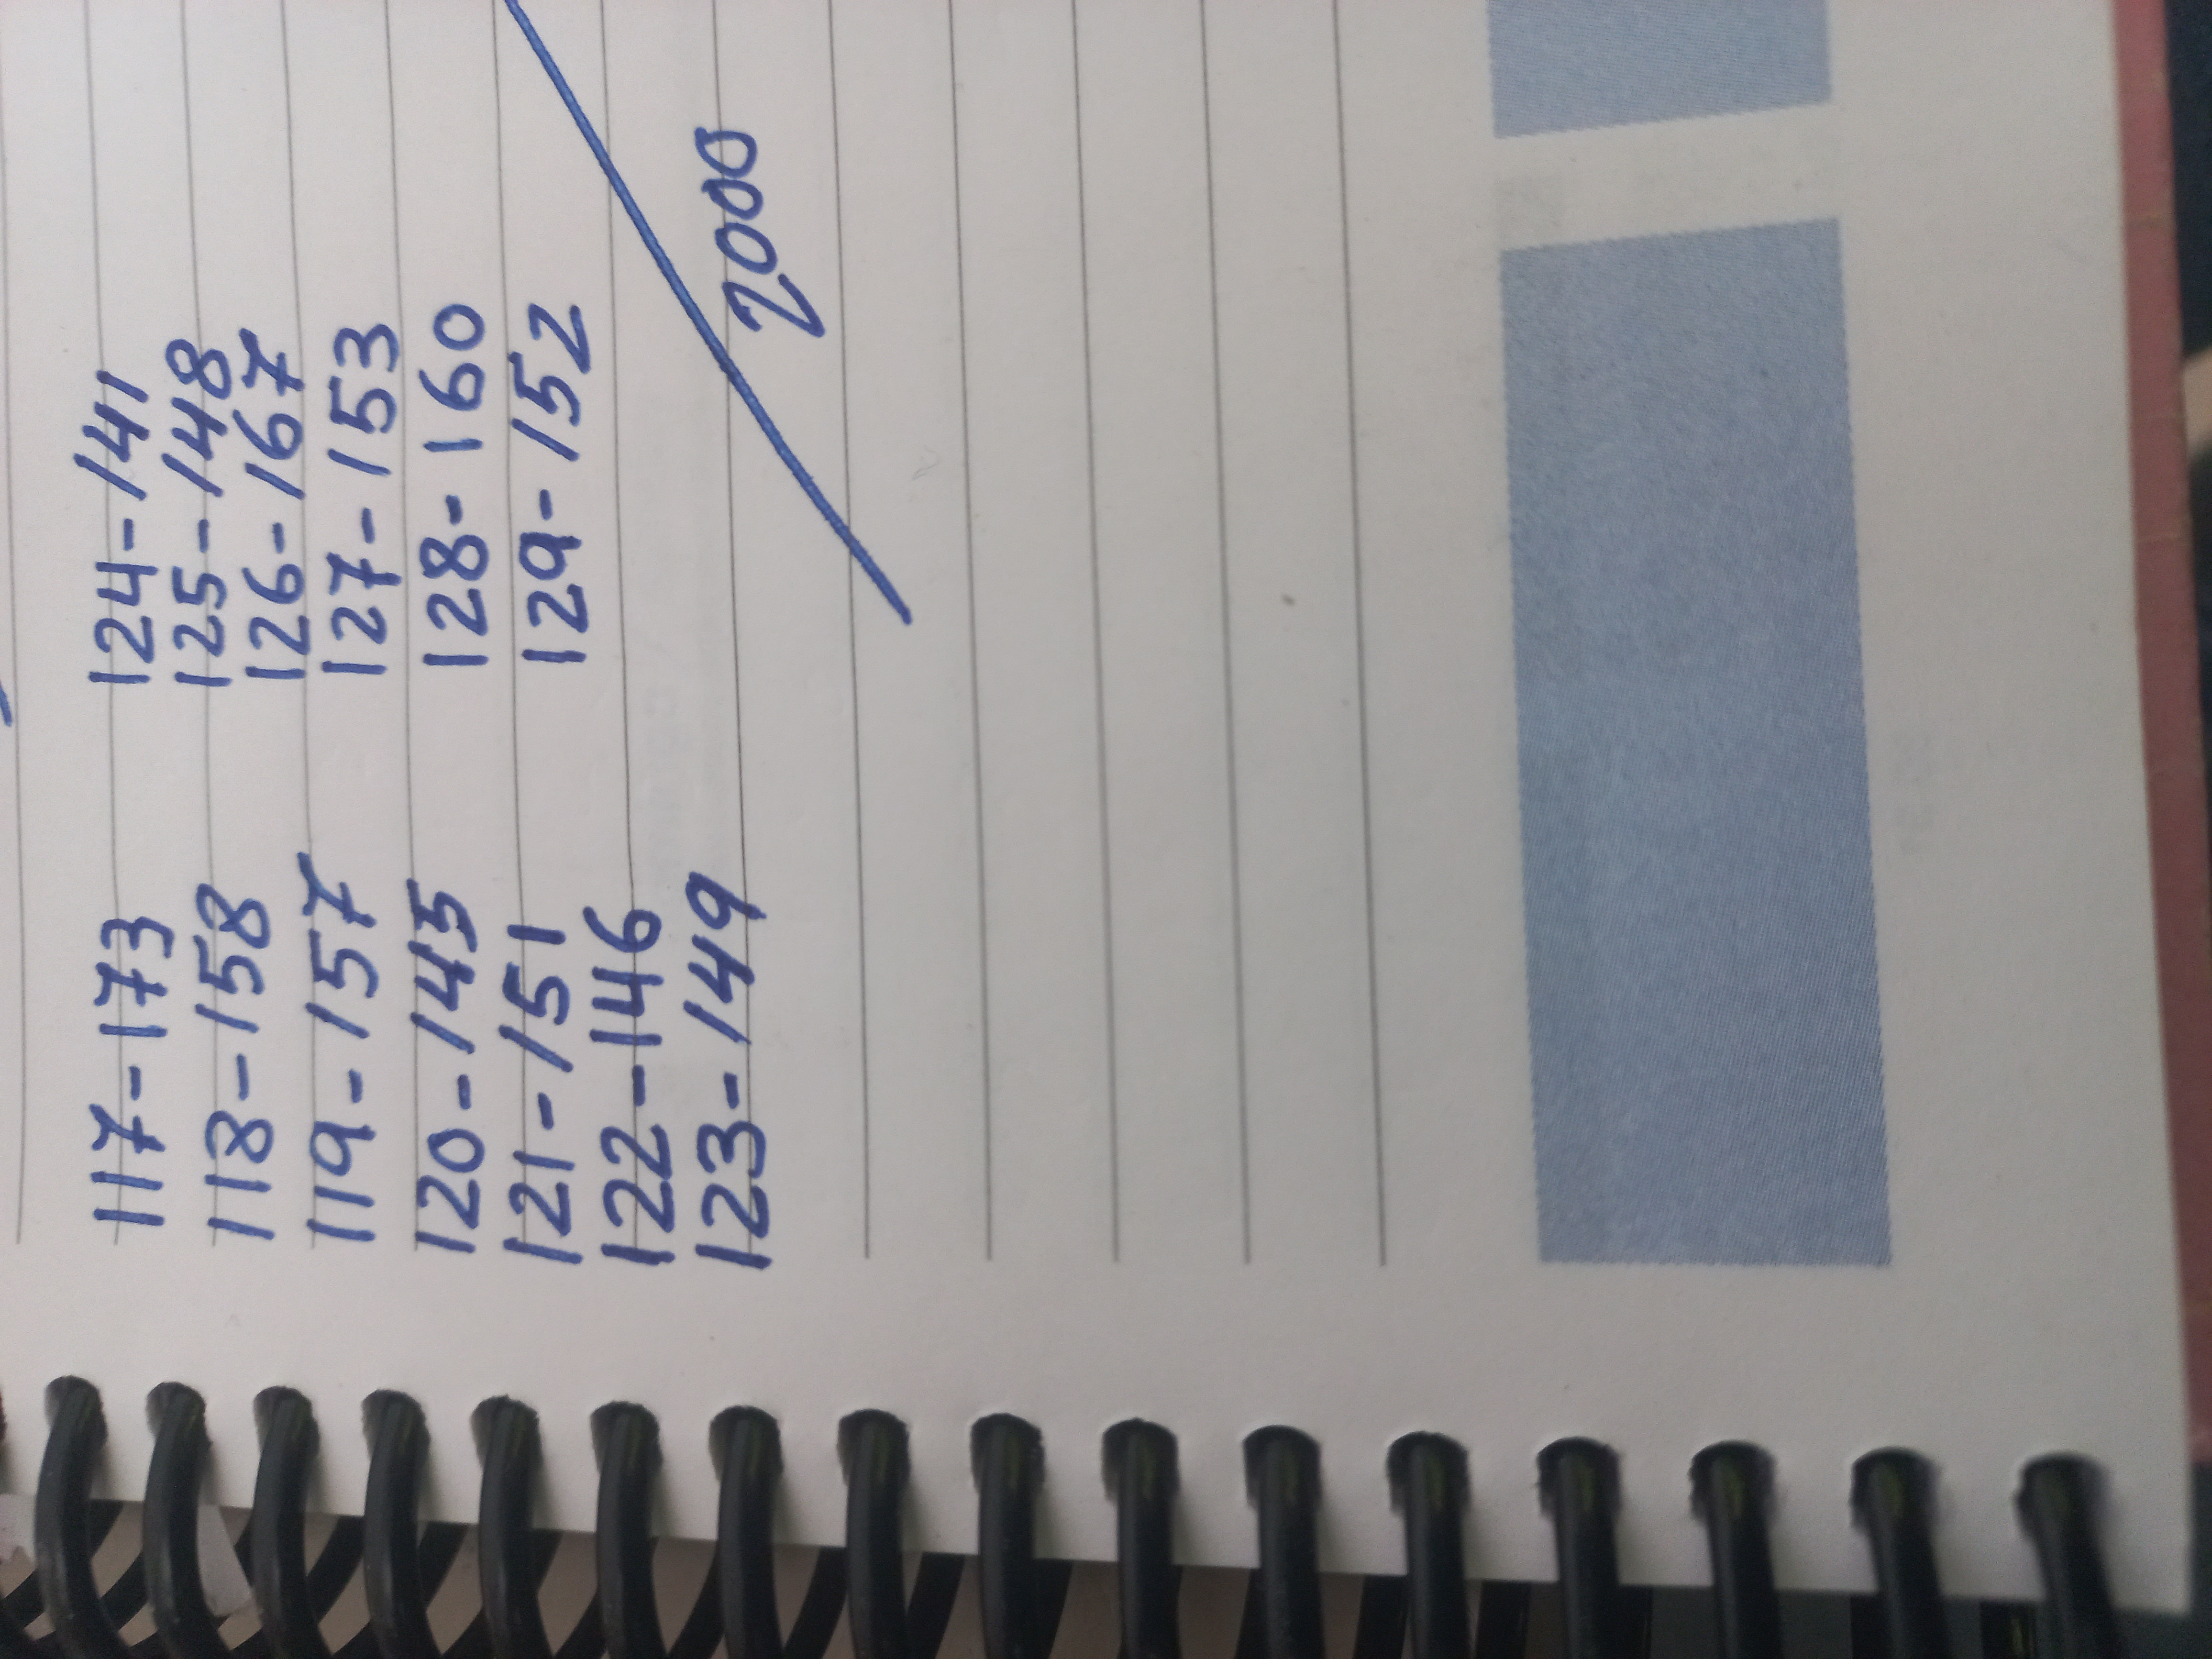 117-173
118-158
119-157
120-145
121-151
122-146
123-149
124-141
125-148
126-167
127-153
128-160
129-152
2000